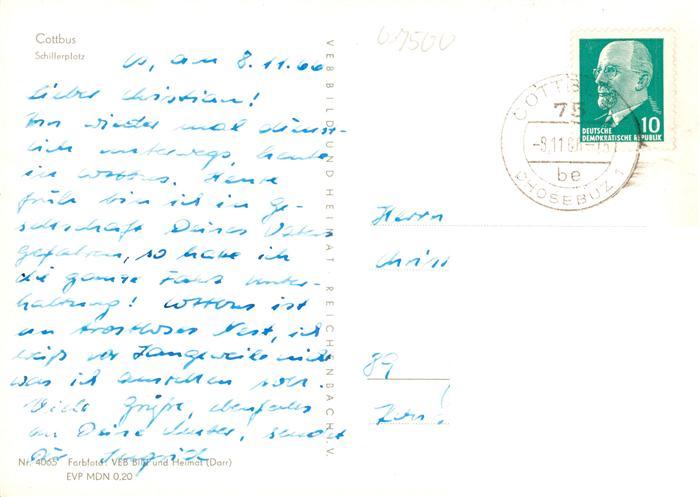 Cottbus
Schillerplatz
am 8.11.66
Lieber Christian!
Bin wieder mal dienst-
lich unterwegs, heute
in Cottbus. Heute
früh bin ich in Ge-
sellschaft Deines Vaters
gefahren, so habe ich
die ganze Fahrt Unter-
haltung! Cottbus ist
ein trostloses Nest, ich
weiß vor Langeweile nicht
was ich anstellen soll.
Viele Grüße, ebenfalls
an Deine Mutter, sendet
Dir
Nr. 4065 Farbfoto: VEB Bild und Heimat (Darr)
EVP MDN 0,20
VEB BILD UND HEIMAT · REICHENBACH i. V.
COTTBUS
75
be
DEUTSCHE
DEMOKRATISCHE REPUBLIK
10
Herrn
Chris
89